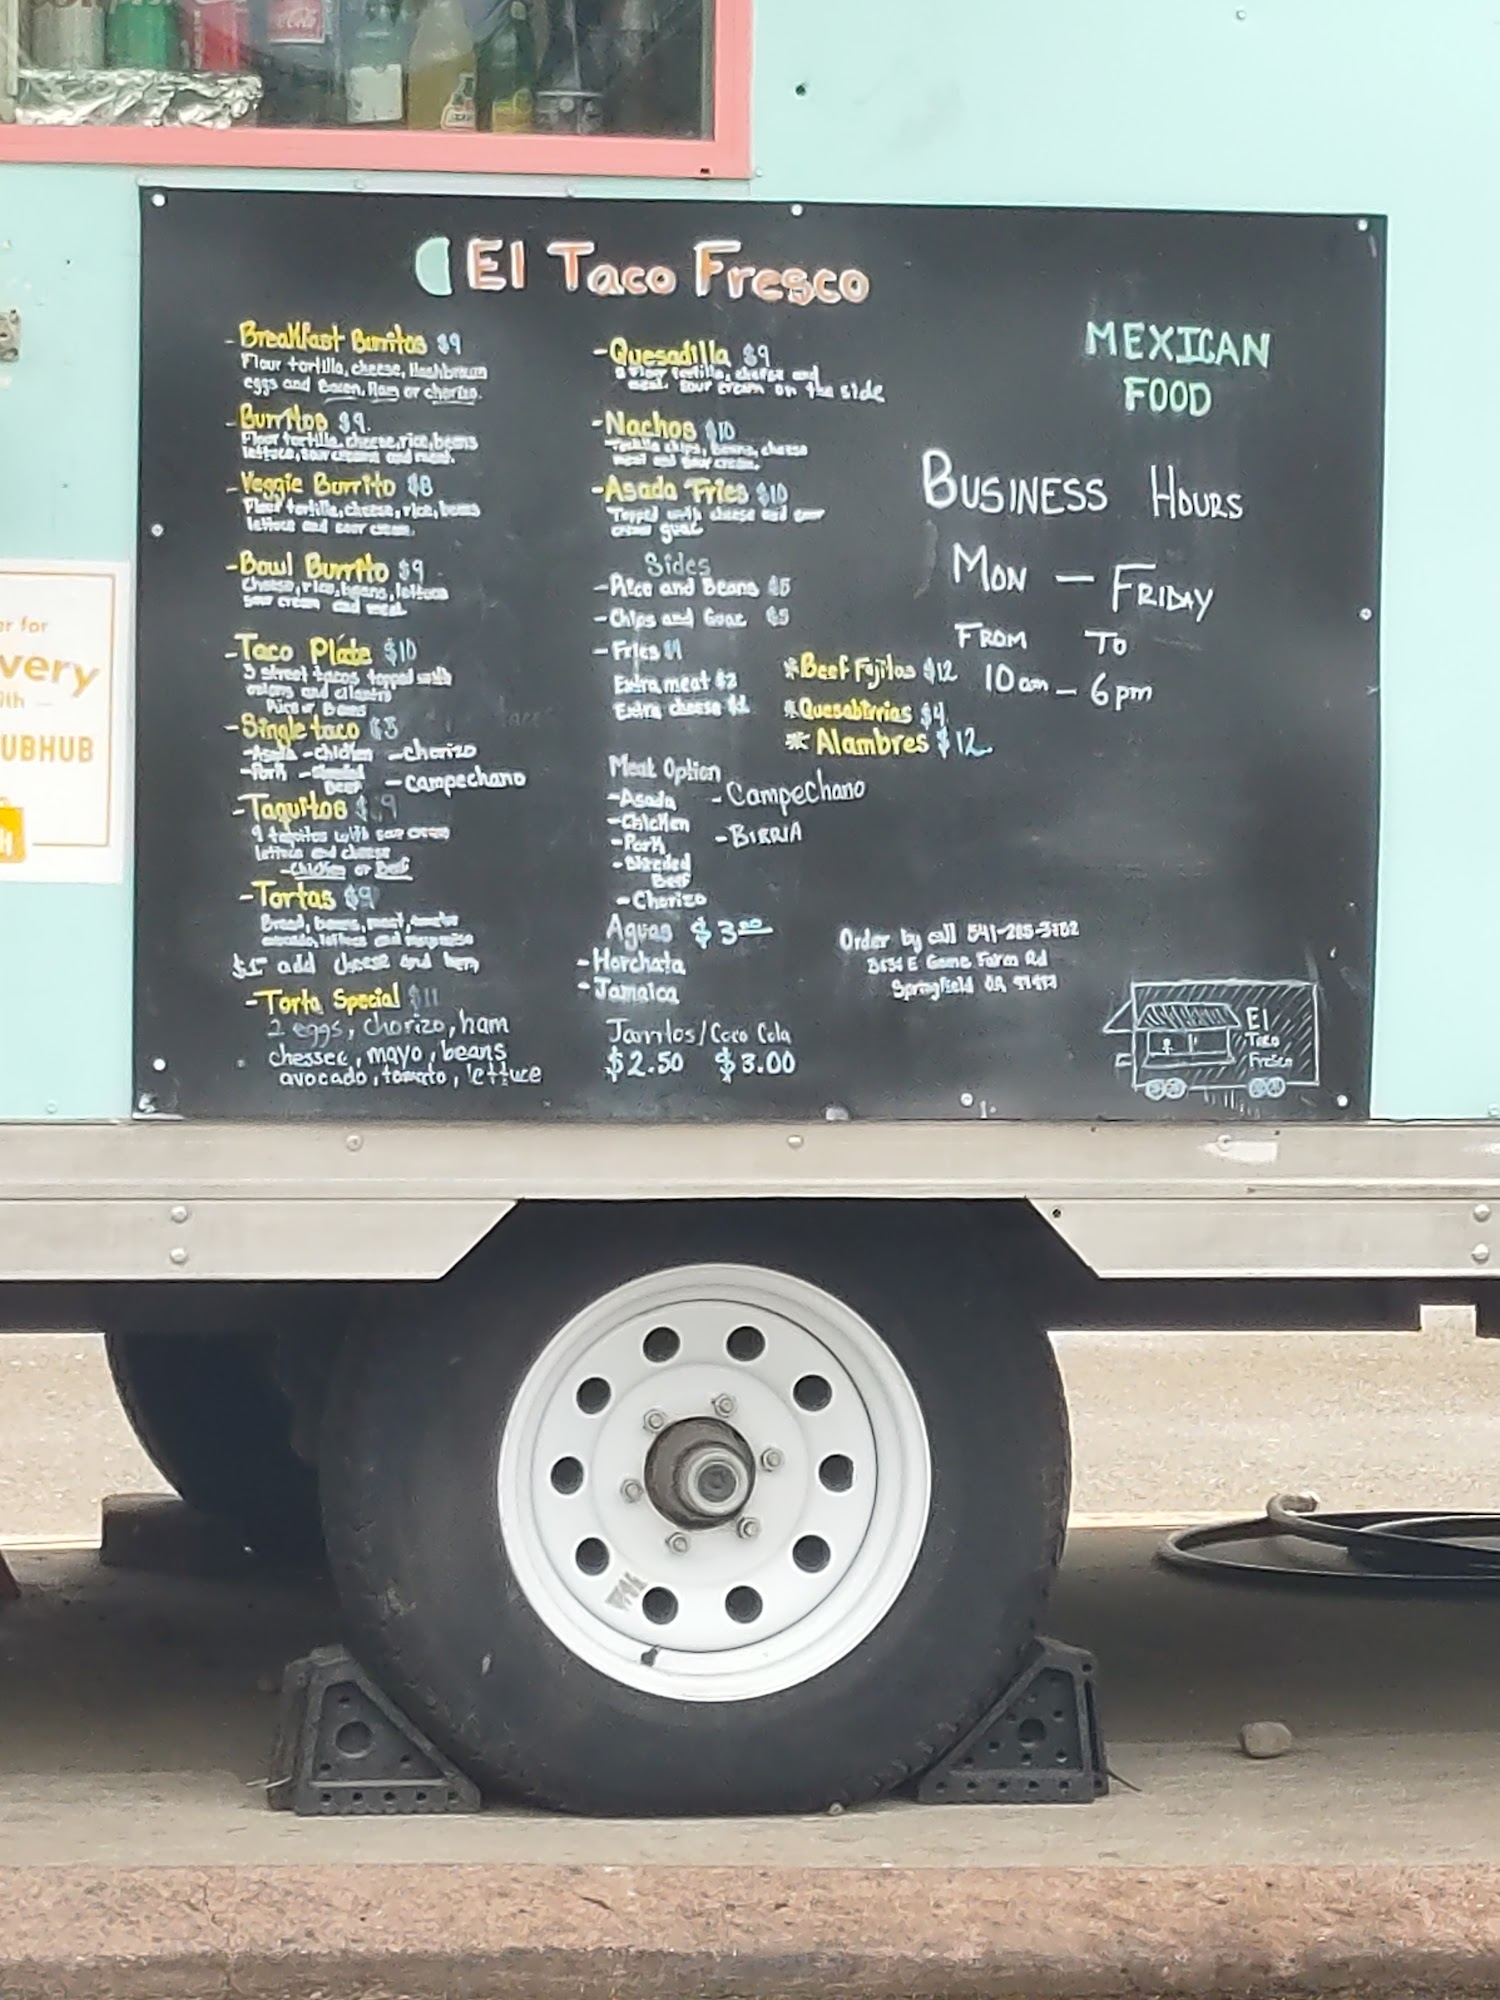 El Taco Fresco
- Breakfast Burritos $9
Flour tortilla, cheese, Hashbrown
eggs and Bacon, Ham or chorizo.
- Burritos $9.
Flour tortilla, cheese, rice, beans
lettuce, sour cream and meat.
- Veggie Burrito $8
Flour tortilla, cheese, rice, beans
lettuce and sour cream.
- Bowl Burrito $9
Cheese, rice, beans, lettuce
sour cream and meat.
- Taco Plate $10
3 street tacos topped with
onions and cilantro
Rice or Beans
- Single taco $3
- Asada - chicken - chorizo
- Pork - Beef - Campechano
- Taquitos $9
taquitos with sour cream
lettuce and cheese
- Chicken or Beef
- Tortas $9
Bread, beans, meat,
avocado, lettuce and
$1 add cheese and
- Torta Special $11
2 eggs, chorizo, ham
chessee, mayo, beans
avocado, tomato, lettuce
- Quesadilla $9
a flour tortilla, cheese and
meat. sour cream on the side
- Nachos $10
Tortilla chips, beans, cheese
meat and sour cream.
- Asada Fries $10
Topped with cheese and sour
cream guac
Sides
- Rice and Beans $5
- Chips and Guac $5
- Fries $4
Extra meat $2
Extra cheese $1
Meat Option
- Asada - Campechano
- Chicken
- Pork - BIRRIA
- Shreded
Beef
- Chorizo
Aguas $3.00
- Horchata
- Jamaica
Jarritos/Coca Cola
$2.50 $3.00
* Beef Fajitas $12
* Quesabirrias $4
* Alambres $12
MEXICAN
FOOD
BUSINESS HOURS
MON — FRIDAY
FROM TO
10am — 6pm
Order by call
E Game Farm Rd
Springfield
El
Taco
Fresco
er for
very
ith
UBHUB